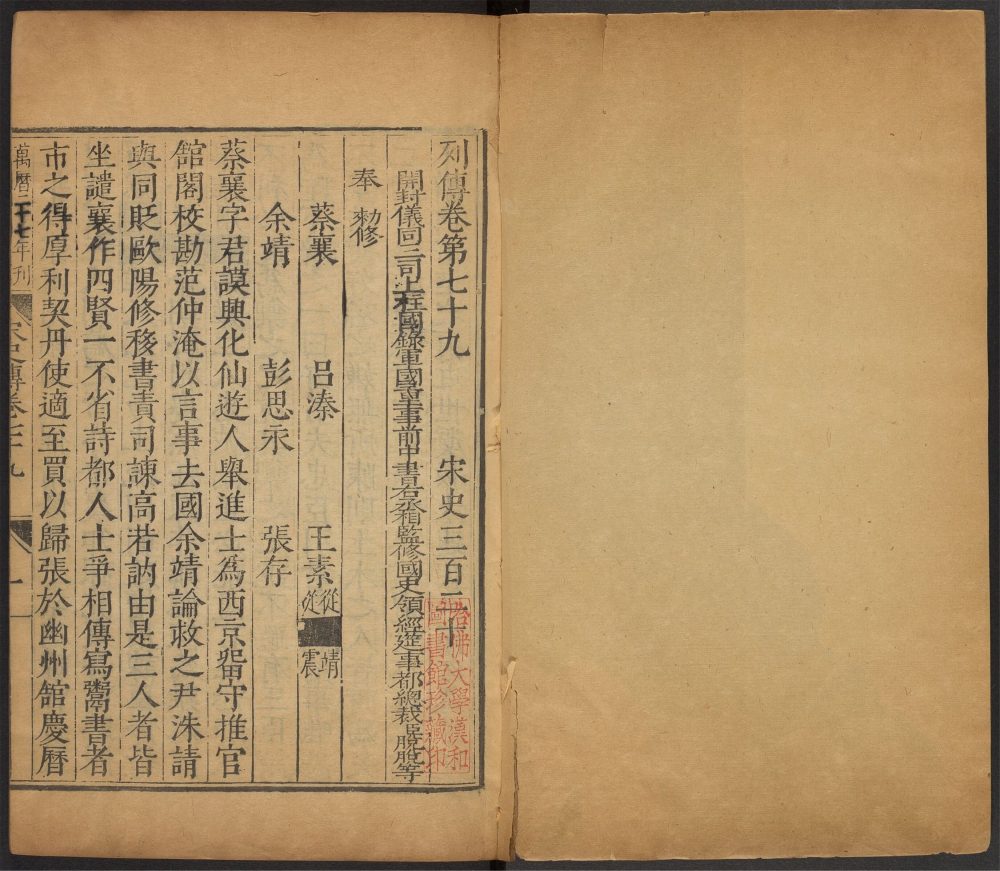 列傳卷第七十九　宋史三百二十
開府儀同三司上柱國錄軍國重事前中書右丞相監修國史領經筵事都總裁臣脫脫等
奉　勑修
蔡襄　呂溱　王素從子靖從孫震
余靖　彭思永　張存
蔡襄字君謨興化仙遊人舉進士爲西京留守推官
館閣校勘范仲淹以言事去國余靖論救之尹洙請
與同貶歐陽修移書責司諫高若訥由是三人者皆
坐譴襄作四賢一不省詩都人士爭相傳寫鬻書者
市之得厚利契丹使適至買以歸張於幽州館慶曆
萬曆二十七年刊
宋史傳卷七十九
一
哈佛大學漢和
圖書館珍藏印